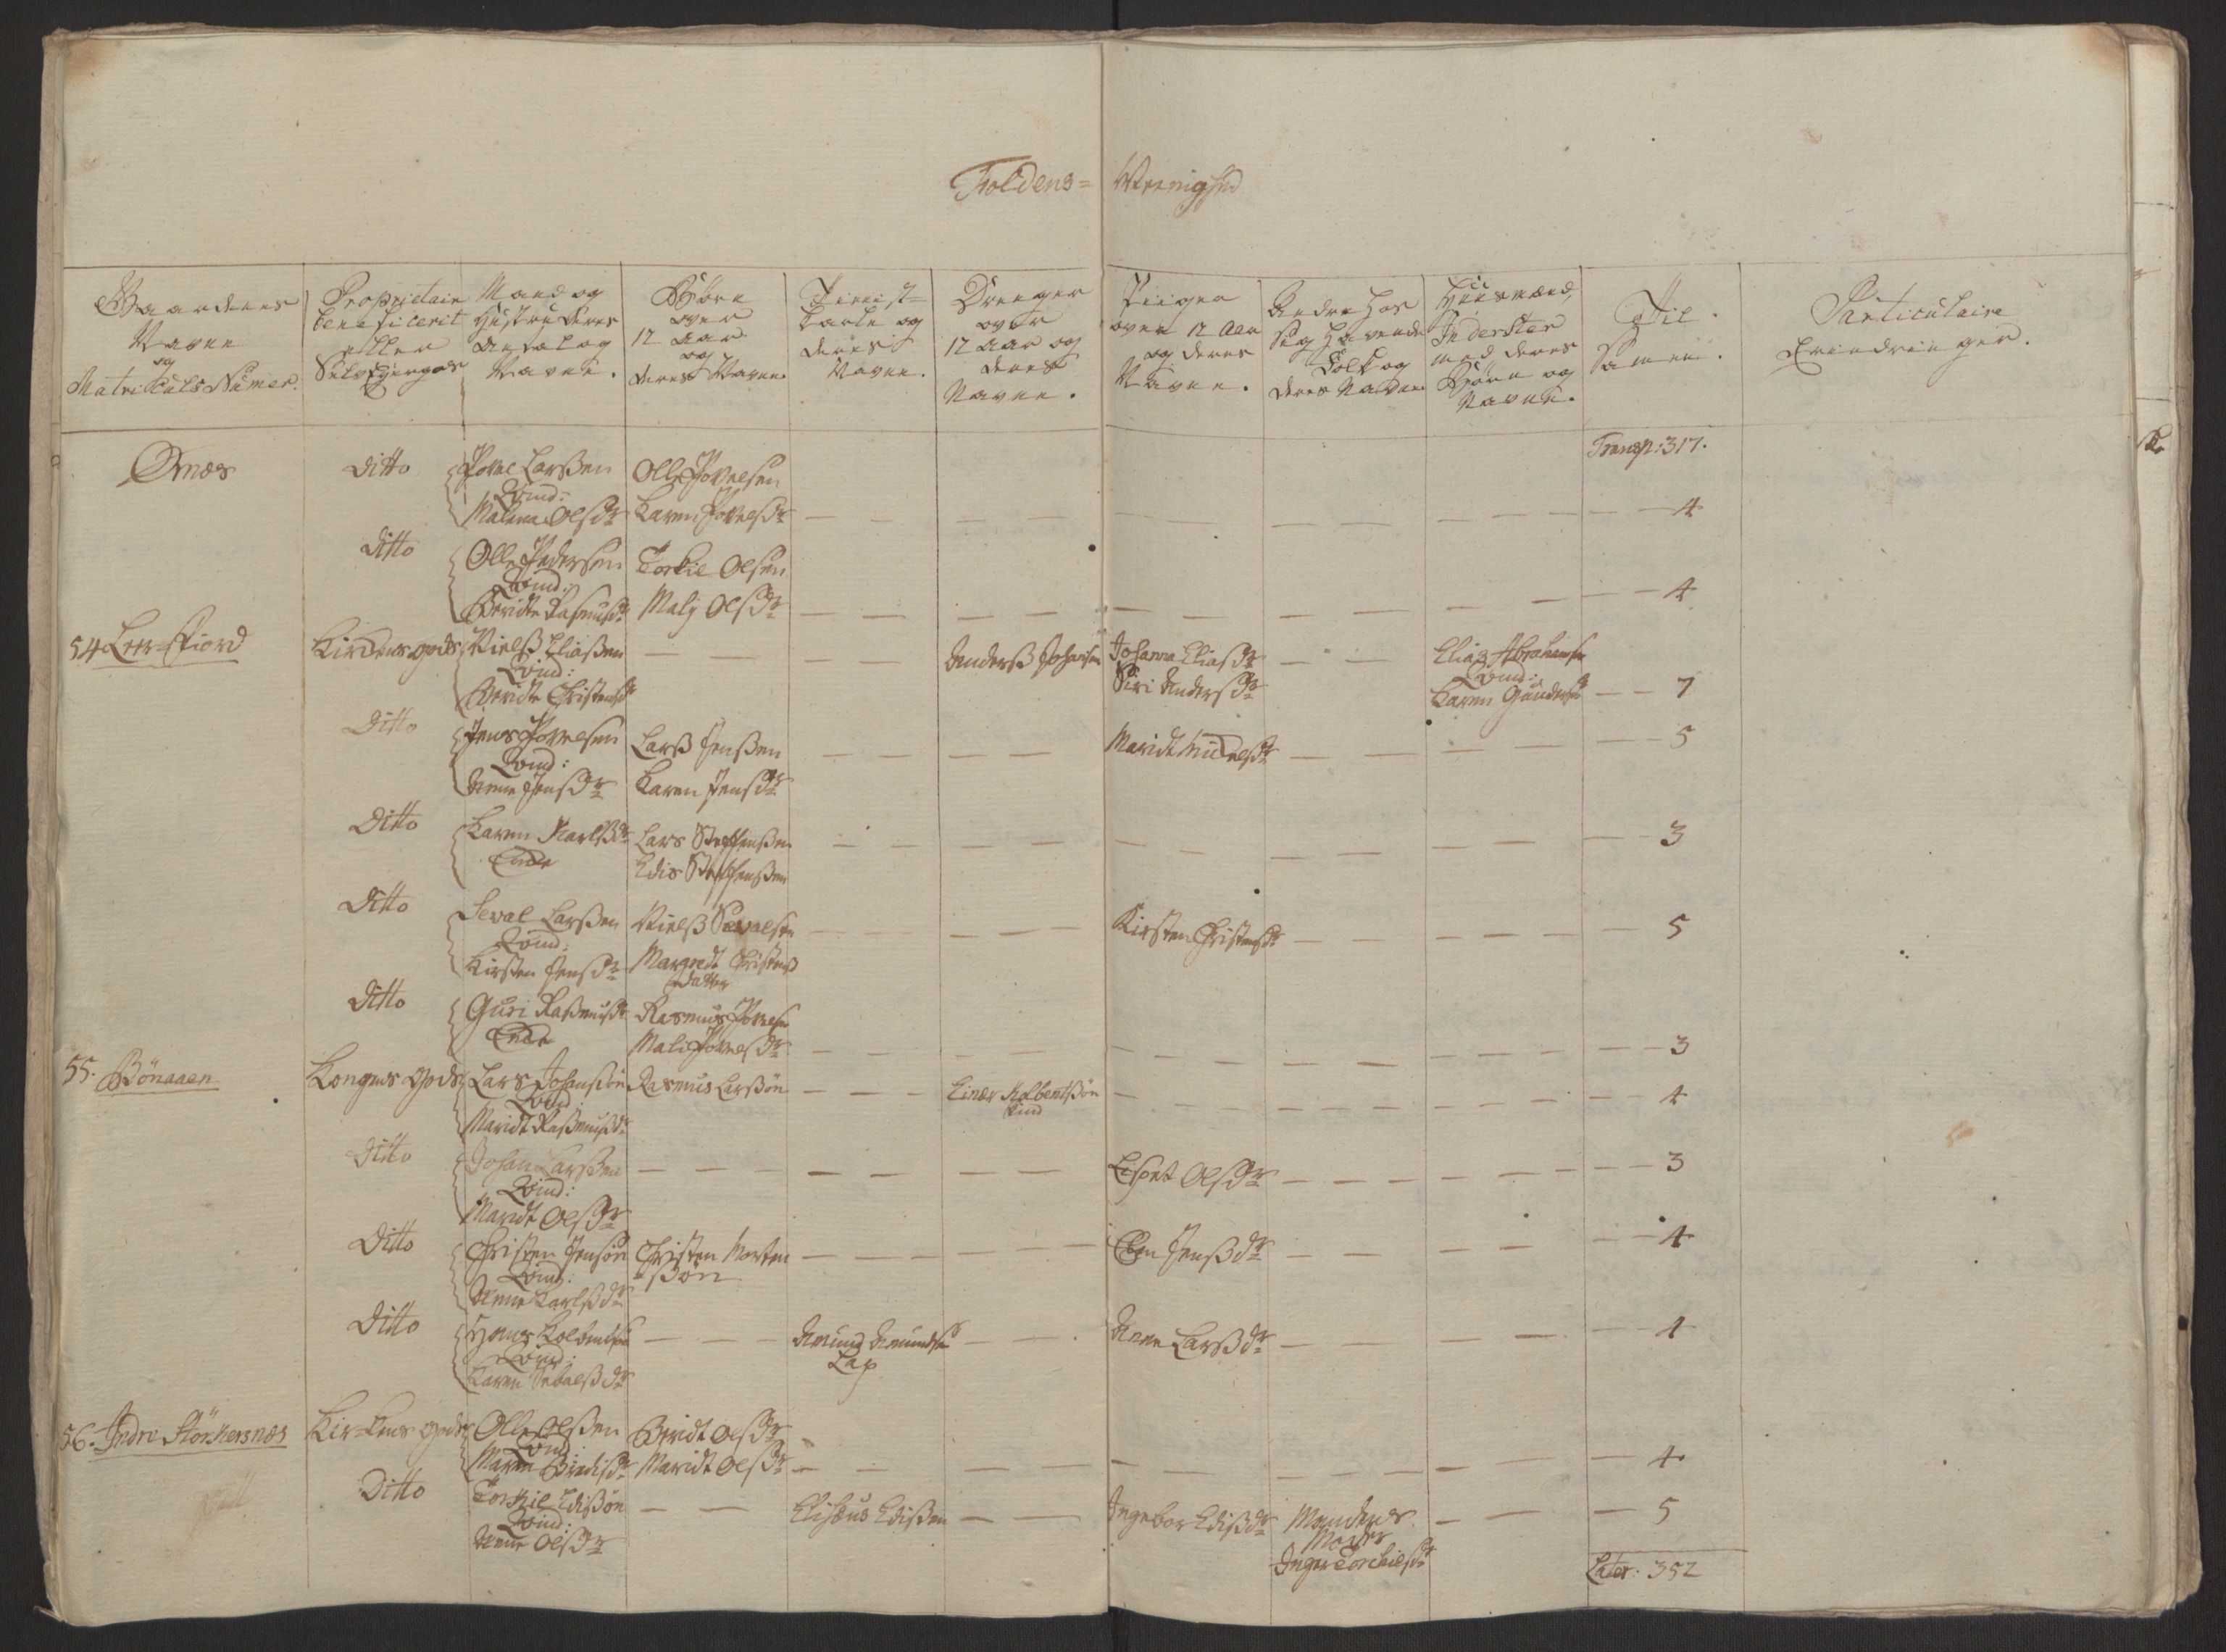 Foldens= Menighed
Gaardens Navne og Matriculs Numer.
Proprietair beneficerit eller Selv Eyergods
Mand og Hustru deres Antal og Navne.
Børn over 12 Aar og deres Navne
Tienist= Karle og deres Navne.
Drenger over 12 Aar og deres Navne.
Piiger over 12 Aar og deres Navne.
Andre hos sig havende Folk og deres Navne
Huusmænd, Inderster med deres Børn og Navne.
Til Samen.
Particulaire Erindringer.
Transp: 317.
Ønæs
Ditto
Povel Larßen
Qvind:
Malena Olsdr
Olle Povelsen
Karen Povelsdr
4
Ditto
Olle Pedersen
Qvind:
Beridte Rasmusdr
Torkil Olsen
Mali Olsdr
4
54 Leer-Fiord
Kirckens gods
Nielß Eliaßen
Qvind:
Beridte Christensdr
Anderß Johansen
Johanna Eliasdr
Siri Andersdr
Elias Abrahamsen
Qvind:
Karen Gundersdr
7
Ditto
Jens Povelsen
Qvind:
Anne Jensdr
Larß Jenßen
Karen Jensdr
Maridt Nielsdr
5
Ditto
Karen Karlßdr
Encke
Lars Steffenßen
Edis Steffenßen
3
Ditto
Seval Larßen
Qvind:
Kirsten Jensdr
Nielß Sevalsen
Margredt Christens
Datter
Kirsten Christensdr
5
Ditto
Guri Raßmusdr
Encke
Rasmus Povelsen
Mali Povelsdr
3
55. Bönaaen
Kongens Gods
Lars Johansøn
Qvind:
Maridt Raßmusdr
Rasmus Larßøn
Einer Kolbentßøn
4
Ditto
Johan Larßen
Qvind:
Maridt Olsdr
Lispet Olsdr
3
Ditto
Christen Jensøn
Qvind:
Anne Karlßdr
Christen Morten
ßøn
Elen Jenßdr
4
Ditto
Hans Kolbentsen
Qvind:
Karen Sevalßdr
Amund Amundsen
Lap
Anne Larßdr
4
56. Indre Störkersnæs
Kirckens gods
Olle Olßen
Qvind:
Maren Bendisdr
Beridt Olsdr
Maridt Olsdr
4
Ditto
Torkil Edißøn
Qvind:
Anne Olsdr
Elisæus Edißen
Ingebor Edisdr
Mandens
Moder
Inger Torchilsdr
5
Later: 352